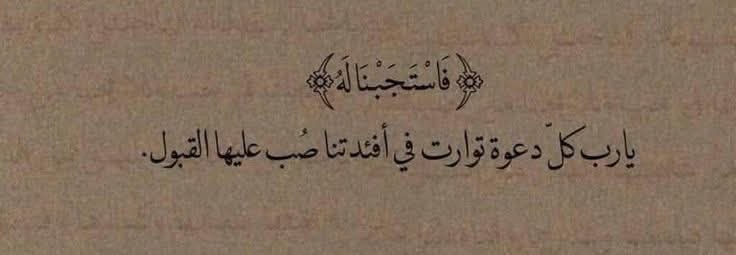 ﴿فَاسْتَجَبْنَا لَهُ﴾
يارب كلّ دعوة توارت في أفئدتنا صُب عليها القبول.